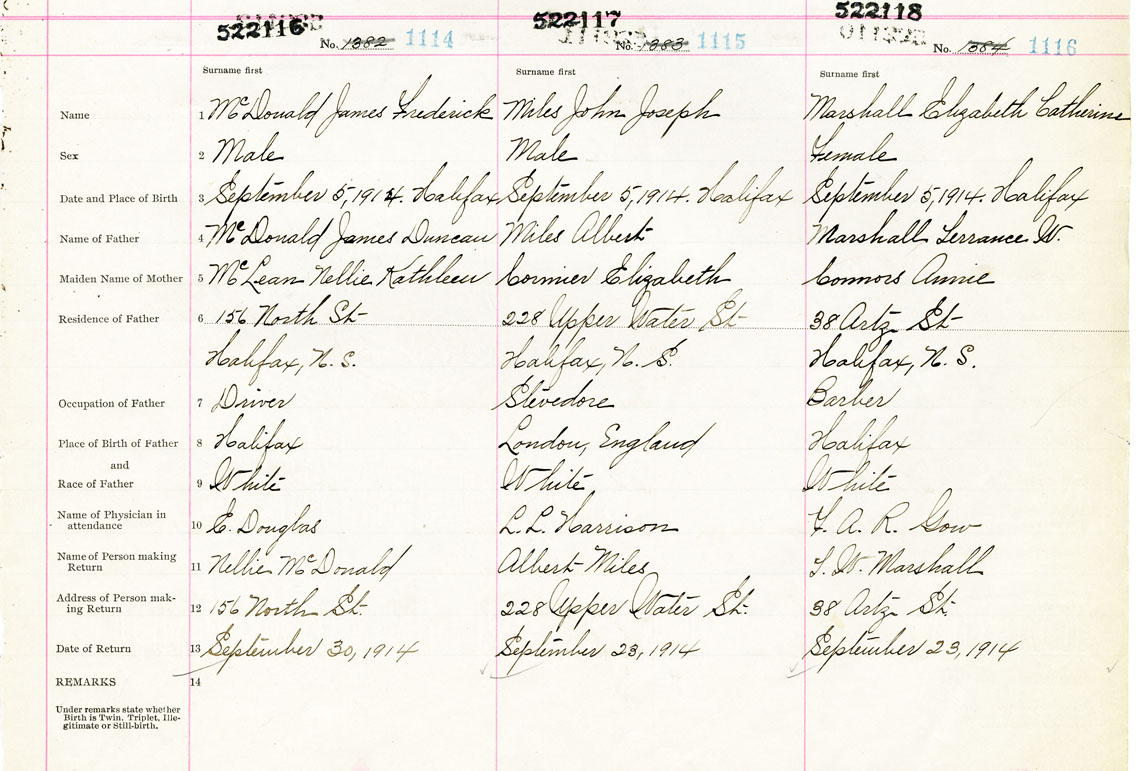 522116 522117 522118
No. 1382 1114 No. 1383 1115 No. 1384 1116
Surname first Surname first Surname first
Name 1 McDonald James Frederick Miles John Joseph Marshall Elizabeth Catherine
Sex 2 Male Male Female
Date and Place of Birth 3 September 5, 1914. Halifax September 5, 1914. Halifax September 5, 1914. Halifax
Name of Father 4 McDonald James Duncan Miles Albert Marshall Terrance W.
Maiden Name of Mother 5 McLean Nellie Kathleen Cormier Elizabeth Connors Annie
Residence of Father 6 156 North St. 228 Upper Water St. 38 Artz St.
Halifax, N. S. Halifax, N. S. Halifax, N. S.
Occupation of Father 7 Driver Stevedore Barber
Place of Birth of Father 8 Halifax London, England Halifax
and
Race of Father 9 White White White
Name of Physician in
attendance 10 E. Douglas L. L. Harrison F. A. R. Gow
Name of Person making
Return 11 Nellie McDonald Albert Miles T. W. Marshall
Address of Person mak-
ing Return 12 156 North St. 228 Upper Water St. 38 Artz St.
Date of Return 13 September 30, 1914 September 23, 1914 September 23, 1914
REMARKS 14
Under remarks state whether
Birth is Twin, Triplet, Ille-
gitimate or Still-birth.